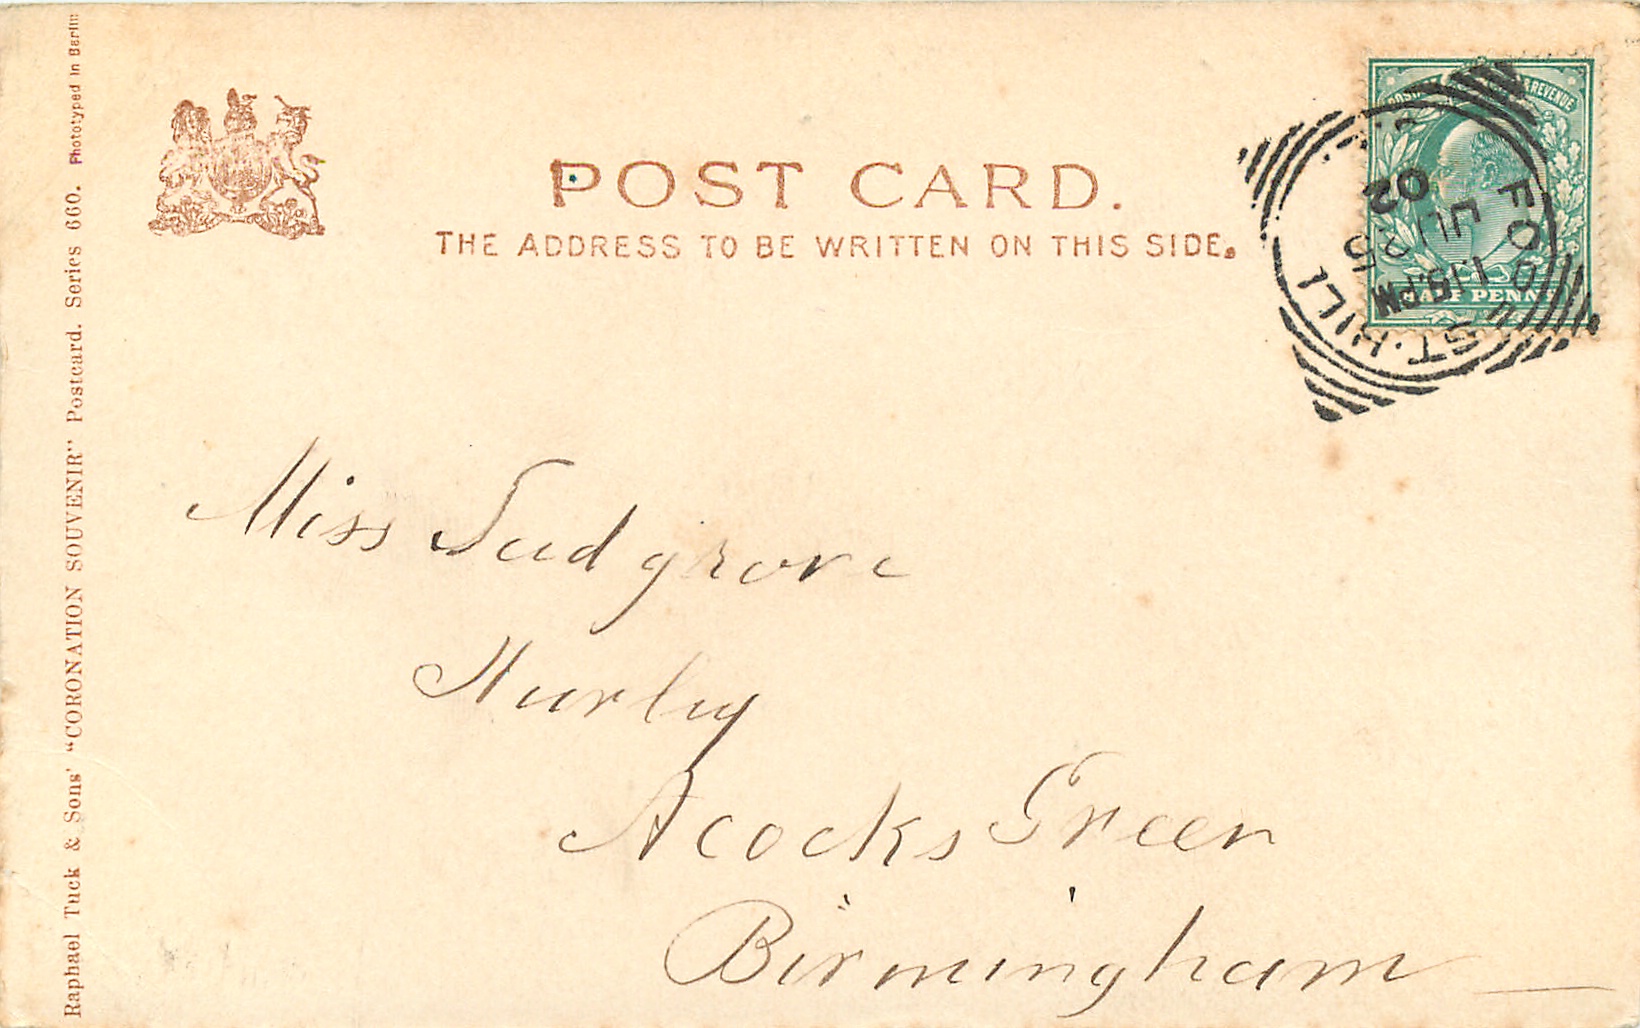 POST CARD.
THE ADDRESS TO BE WRITTEN ON THIS SIDE.
REVENUE
HALF PENNY
1.15.PM
JU 25
02
ST. HILL
Miss Sadgrove
Hurley
Acocks Green
Birmingham
Raphael Tuck & Sons' "CORONATION SOUVENIR" Postcard. Series 660. Phototyped in Berlin